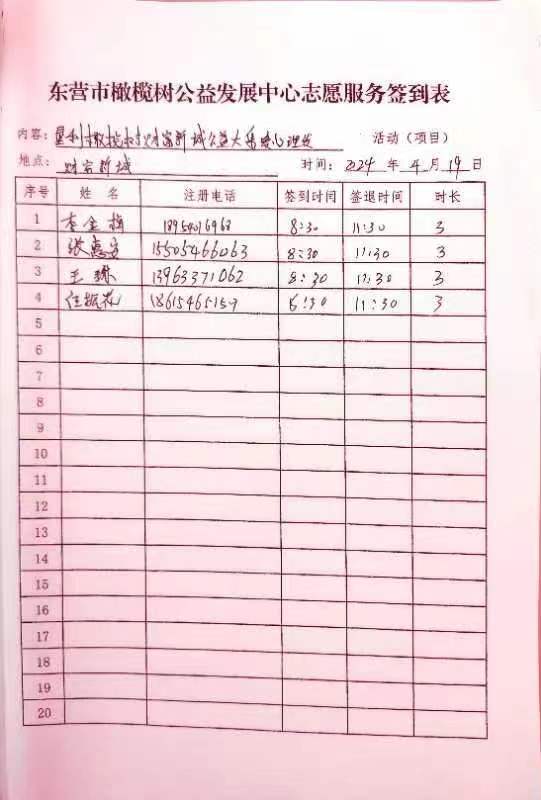 东营市橄榄树公益发展中心志愿服务签到表
内容：垦利橄榄树财富新城公益大集爱心理发 活动（项目）
地点：财富新城 时间：2024 年 4 月 19 日
序号 姓 名 注册电话 签到时间 签退时间 时长
1 李金梅 8:30 11:30 3
2 张惠 15505466063 8:30 11:30 3
3 王 13963371062 8:30 11:30 3
4 任振花 18615465159 8:30 11:30 3
5
6
7
8
9
10
11
12
13
14
15
16
17
18
19
20